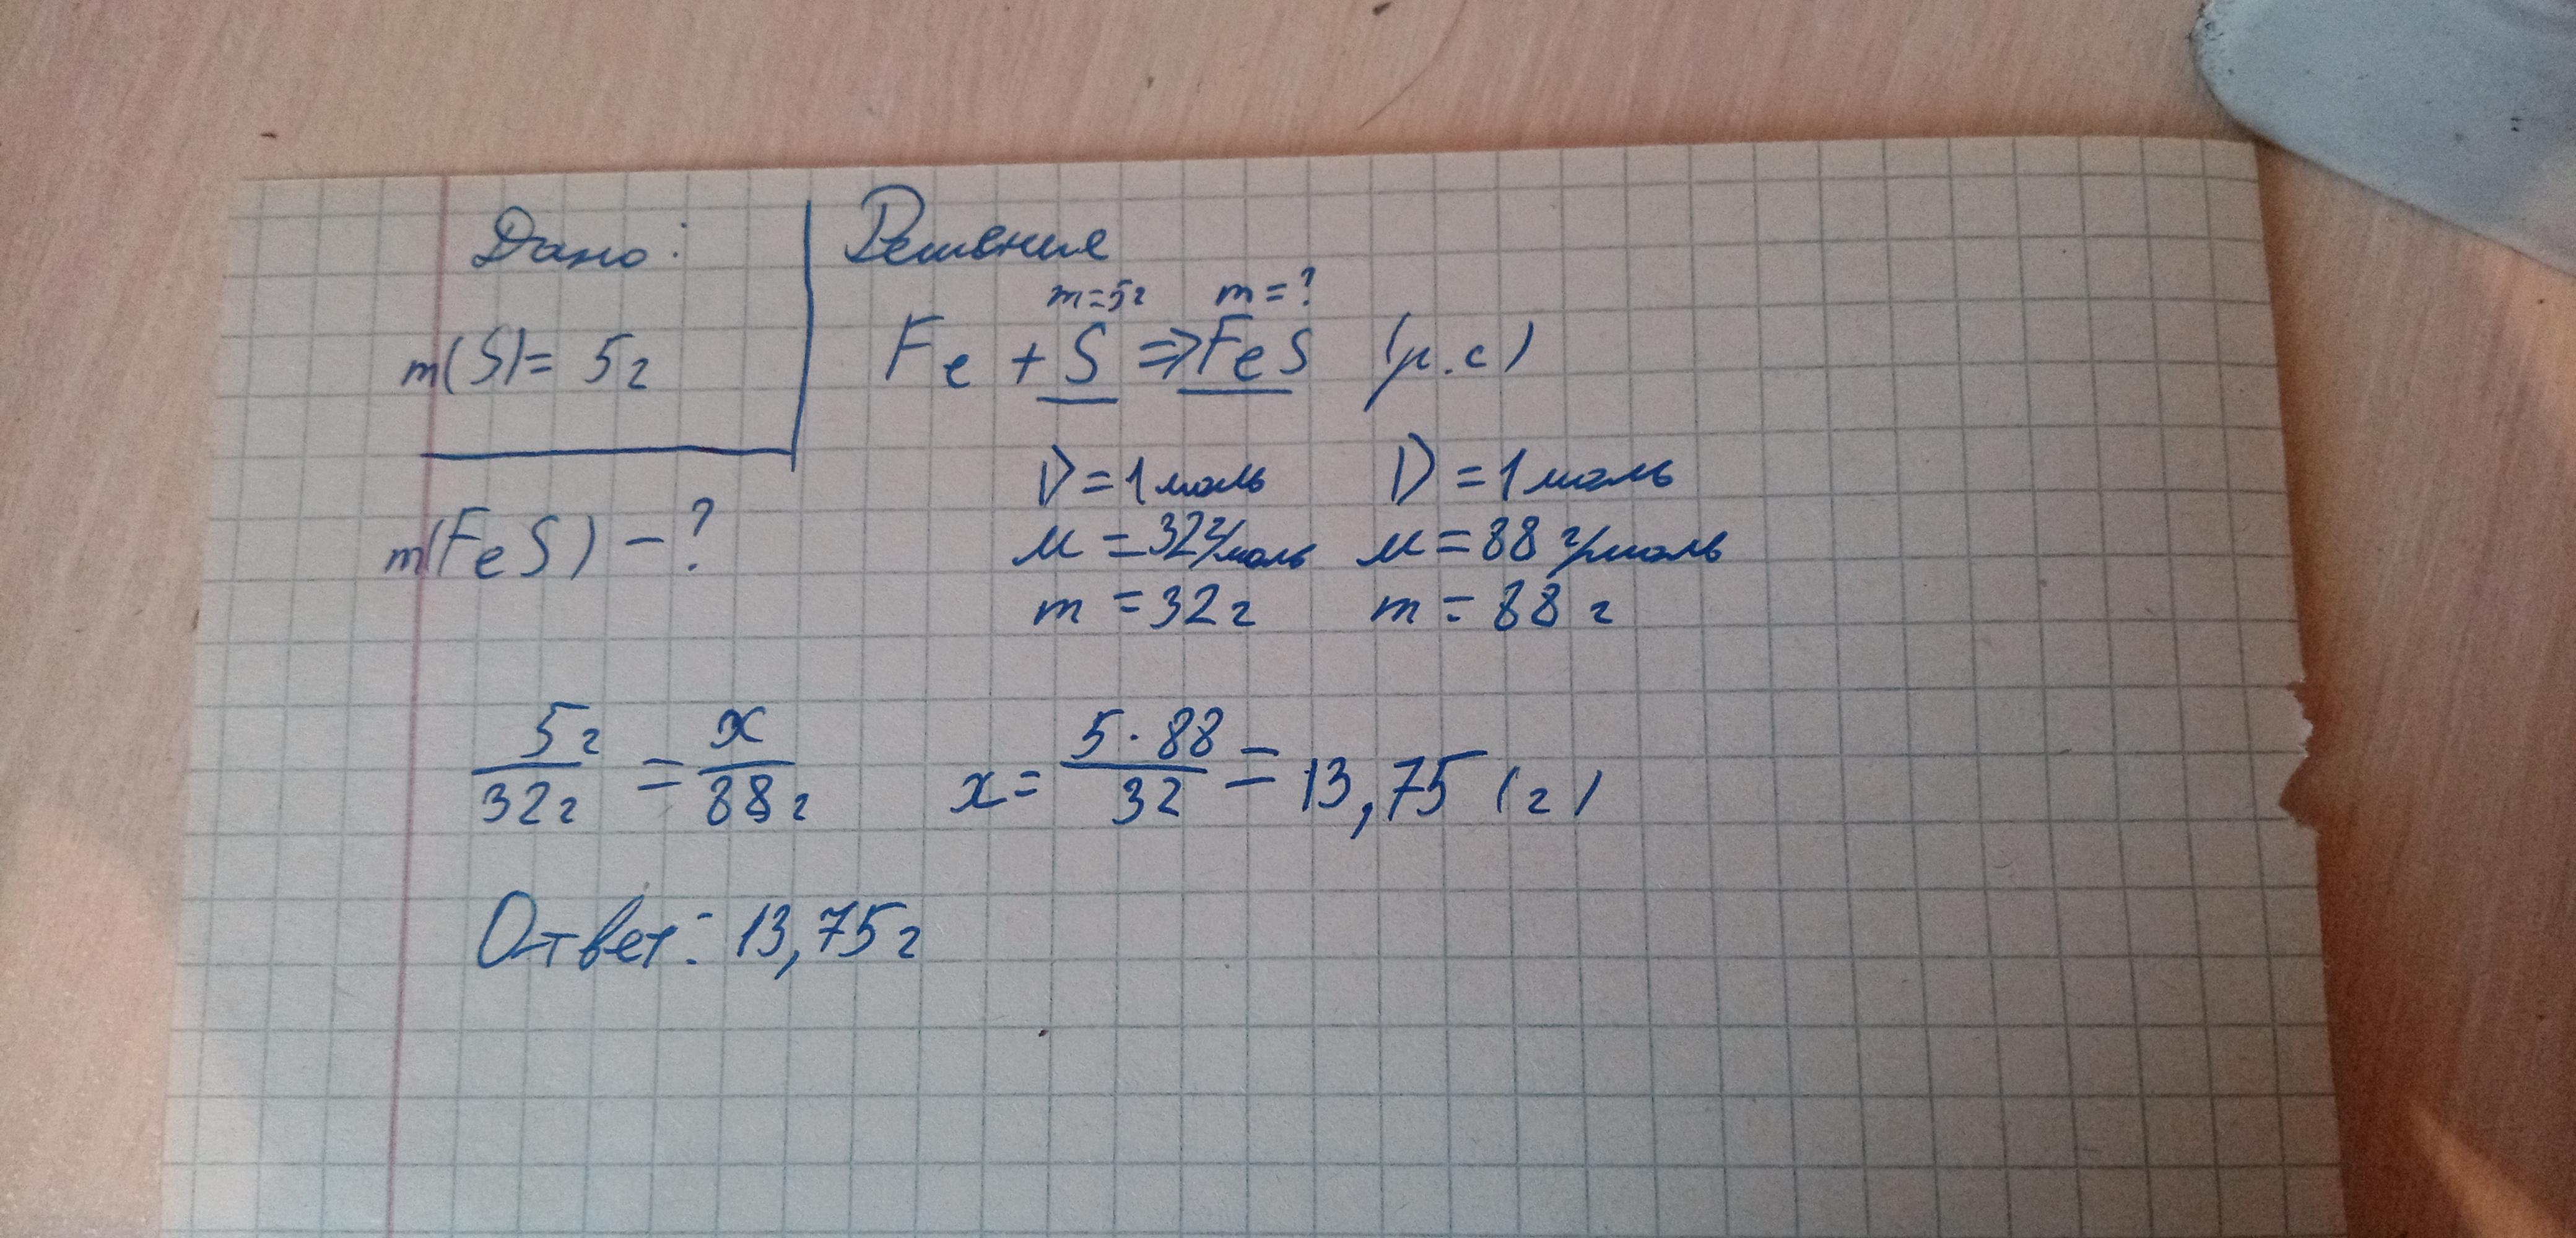 Дано:
m(S) = 5г
m(FeS) - ?
Решение
m=5г m=?
Fe + S => FeS (р.с)
ν = 1 моль ν = 1 моль
M = 32 г/моль M = 88 г/моль
m = 32 г m = 88 г
5г/32г = x/88г x = 5·88/32 = 13,75 (г)
Ответ: 13,75г